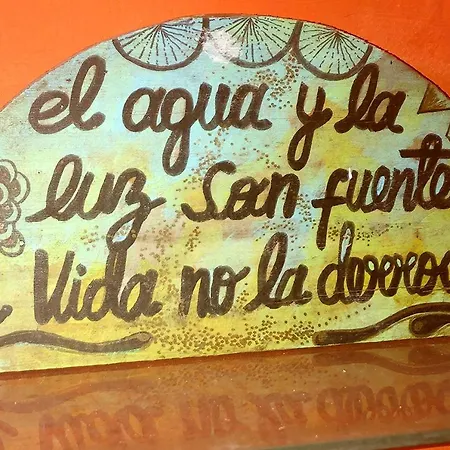 el agua y la
luz son fuente
Vida no la derroc